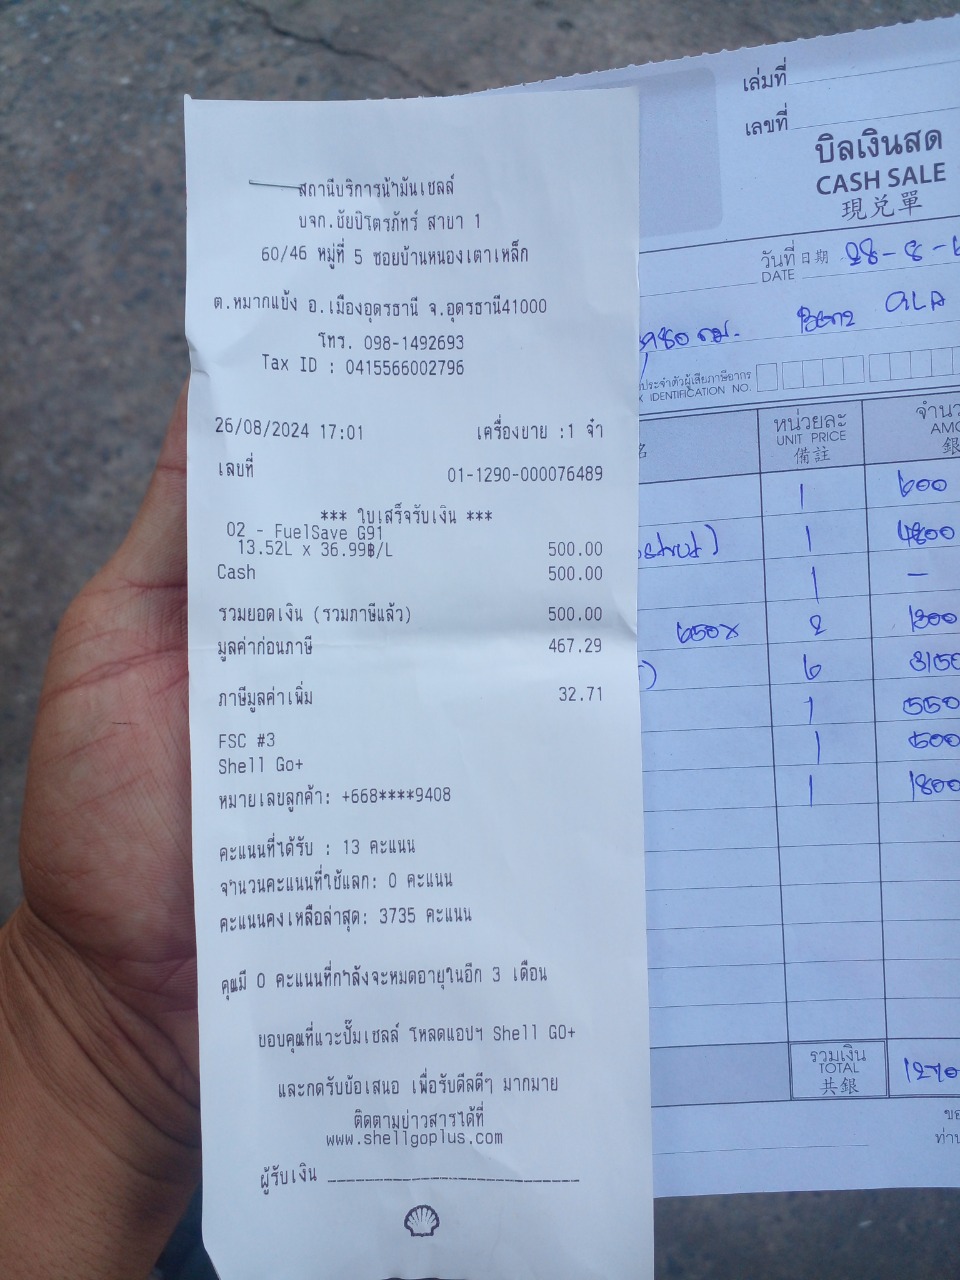 สถานีบริการน้ำมันเชลล์
บจก.ชัยปิโตรภัทร์ สาขา 1
60/46 หมู่ที่ 5 ซอยบ้านหนองเตาเหล็ก
ต.หมากแข้ง อ.เมืองอุดรธานี จ.อุดรธานี41000
โทร. 098-1492693
Tax ID : 0415566002796
26/08/2024 17:01 เครื่องขาย :1 จ๋า
เลขที่ 01-1290-000076489
*** ใบเสร็จรับเงิน ***
02 - FuelSave G91
13.52L x 36.99฿/L 500.00
Cash 500.00
รวมยอดเงิน (รวมภาษีแล้ว) 500.00
มูลค่าก่อนภาษี 467.29
ภาษีมูลค่าเพิ่ม 32.71
FSC #3
Shell Go+
หมายเลขลูกค้า: +668****9408
คะแนนที่ได้รับ : 13 คะแนน
จำนวนคะแนนที่ใช้แลก: 0 คะแนน
คะแนนคงเหลือล่าสุด: 3735 คะแนน
คุณมี 0 คะแนนที่กำลังจะหมดอายุในอีก 3 เดือน
ขอบคุณที่แวะปั๊มเชลล์ โหลดแอปฯ Shell GO+
และกดรับข้อเสนอ เพื่อรับดีลดีๆ มากมาย
ติดตามข่าวสารได้ที่
www.shellgoplus.com
ผู้รับเงิน
เล่มที่
เลขที่
บิลเงินสด
CASH SALE
現兌單
วันที่ 日期 28-8-
DATE
980 กม. Benz
ประจำตัวผู้เสียภาษีอากร
IDENTIFICATION NO.
名 หน่วยละ จำนว
UNIT PRICE AMO
備註 銀
1 600
1 4800
1 —
650x 2 1300
6 3150
1 550
1 500
1 1800
รวมเงิน
TOTAL 1270
共銀
ขอ
ท่าน